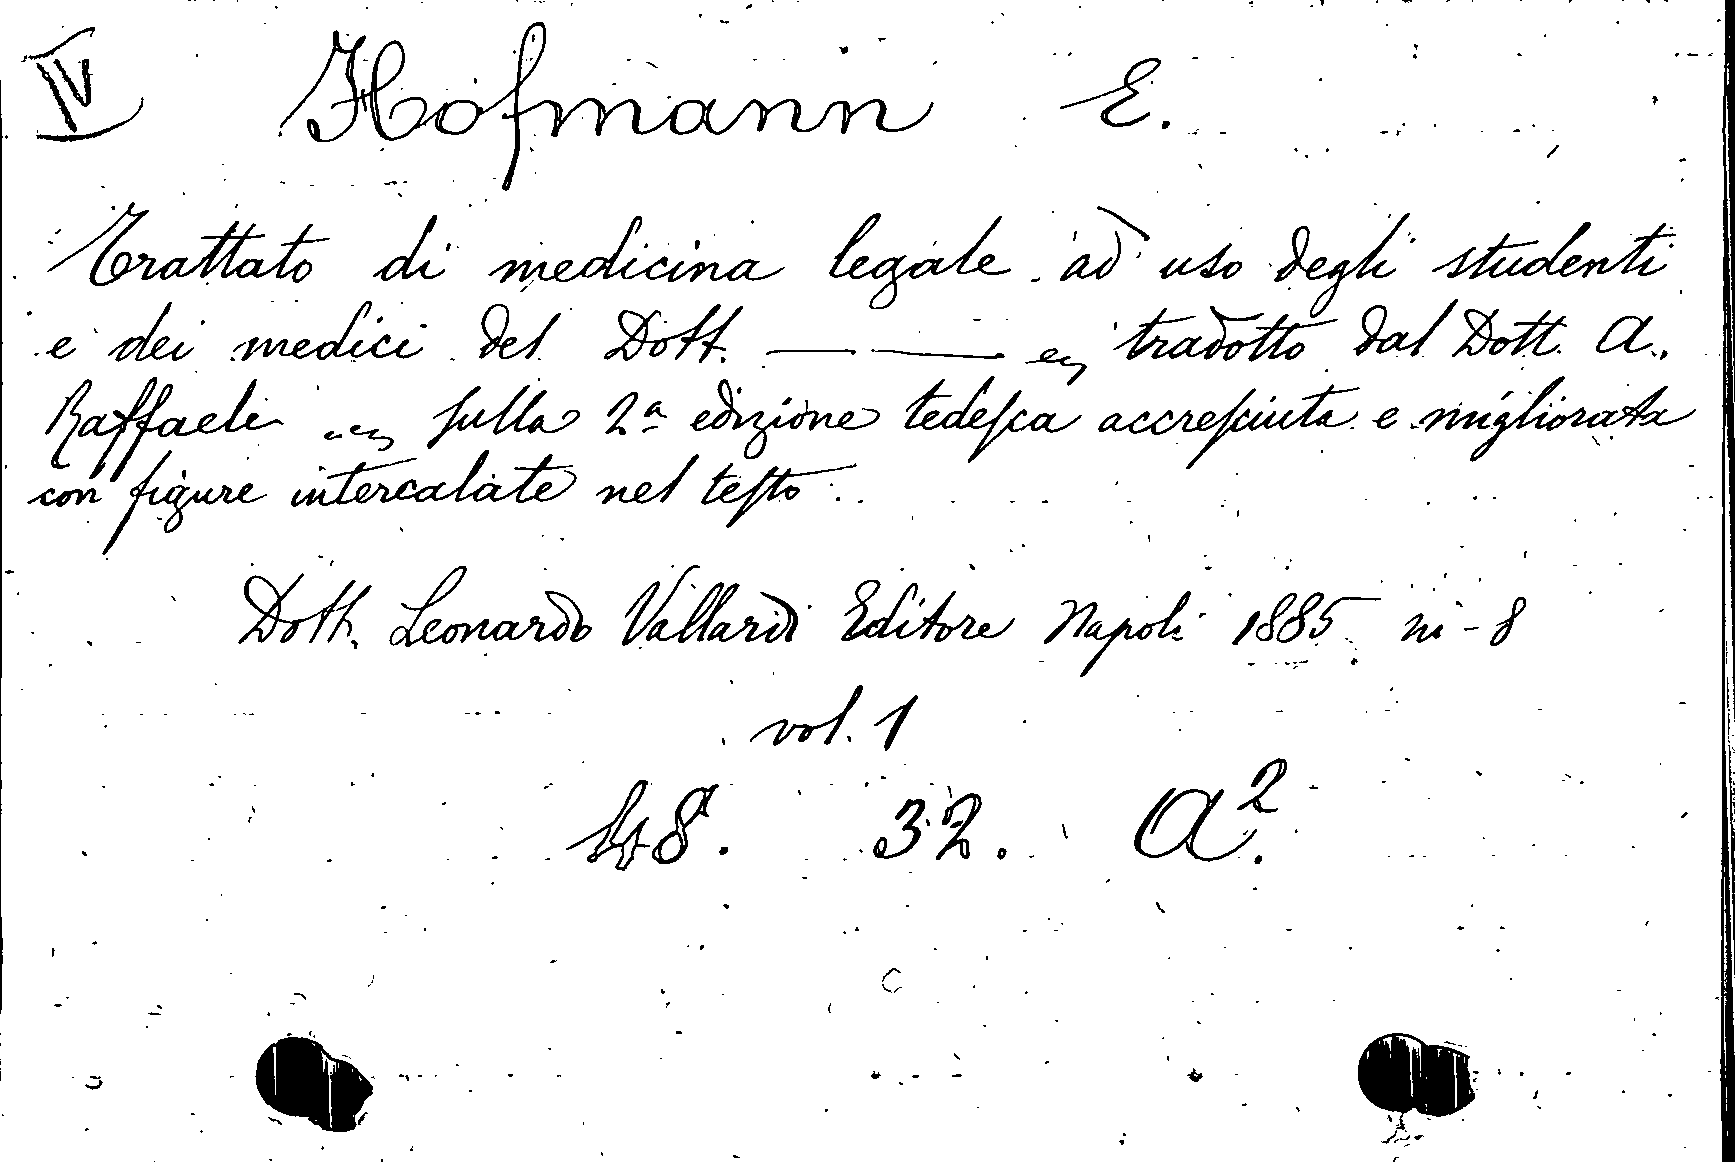 IV Hofmann E.
Trattato di medicina legale ad uso degli studenti
e dei medici del Dott. — — tradotto dal Dott. A.
Raffaele sulla 2ª edizione tedesca accresciuta e migliorata
con figure intercalate nel testo.
Dott. Leonardo Vallardi Editore Napoli 1885 in-8
vol. 1
48. 32. A².